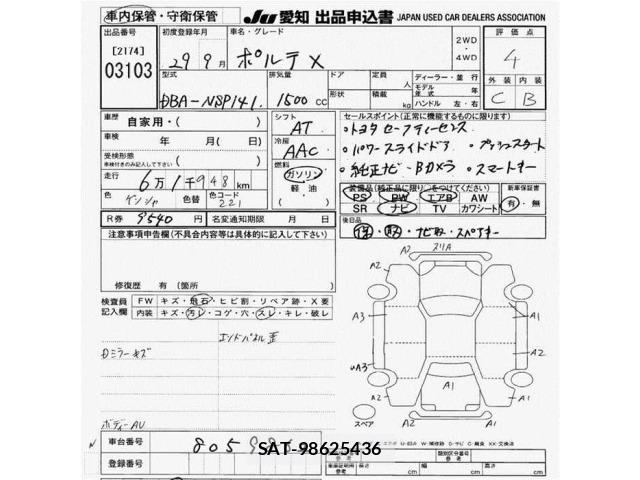 車内保管・守衛保管
JU 愛知 出品申込書 JAPAN USED CAR DEALERS ASSOCIATION
出品番号 初度登録年月 車名・グレード 評価点
[2174] 29年9月 ポルテ X 2WD・4WD 4
03103
型式 排気量 ドア 定員 人 ディーラー・並行 外装 内装
DBA-NSP141 1500 cc 形状 積載 kg モデル年式 年 C B
ハンドル 左・右
車歴 自家用・( ) シフト AT セールスポイント(正常に機能するものに限ります)
車検 年 月(日) 冷房 AAC ・トヨタ セーフティーセンス
受検形態 ・パワースライドドア ・プッシュスタート
車検付きのみ記入して下さい ( ) 燃料 ・純正ナビ・Bカメラ ・スマートキー
走行 6万1千948km ガソリン
軽・油
( )
装備品(純正品に限り)○をつけてください) 新車保証書
色 色替 色コード 221 PS PW エアB AW 有・無
SR ナビ TV カワシート
R券 9540円 名変通知期限 月 日
後日品
注意事項申告欄(不具合内容等は具体的に記入して下さい) 保・取・ナビ取・スペアキー
修復歴 有(箇所 )
検査員記入欄 FW キズ・飛石・ヒビ割・リペア跡・X要
内装 キズ・汚レ・コゲ・穴・スレ・キレ・破レ
エンドパネル歪
Dミラーキズ
ボディーAU
スリA
A2 A2
A3 A1
A2
A3
A1
A2 A1
A2
スペア
車台番号
登録番号
SAT-98625436
類別区分番号
長さ cm 幅 cm 高さ cm